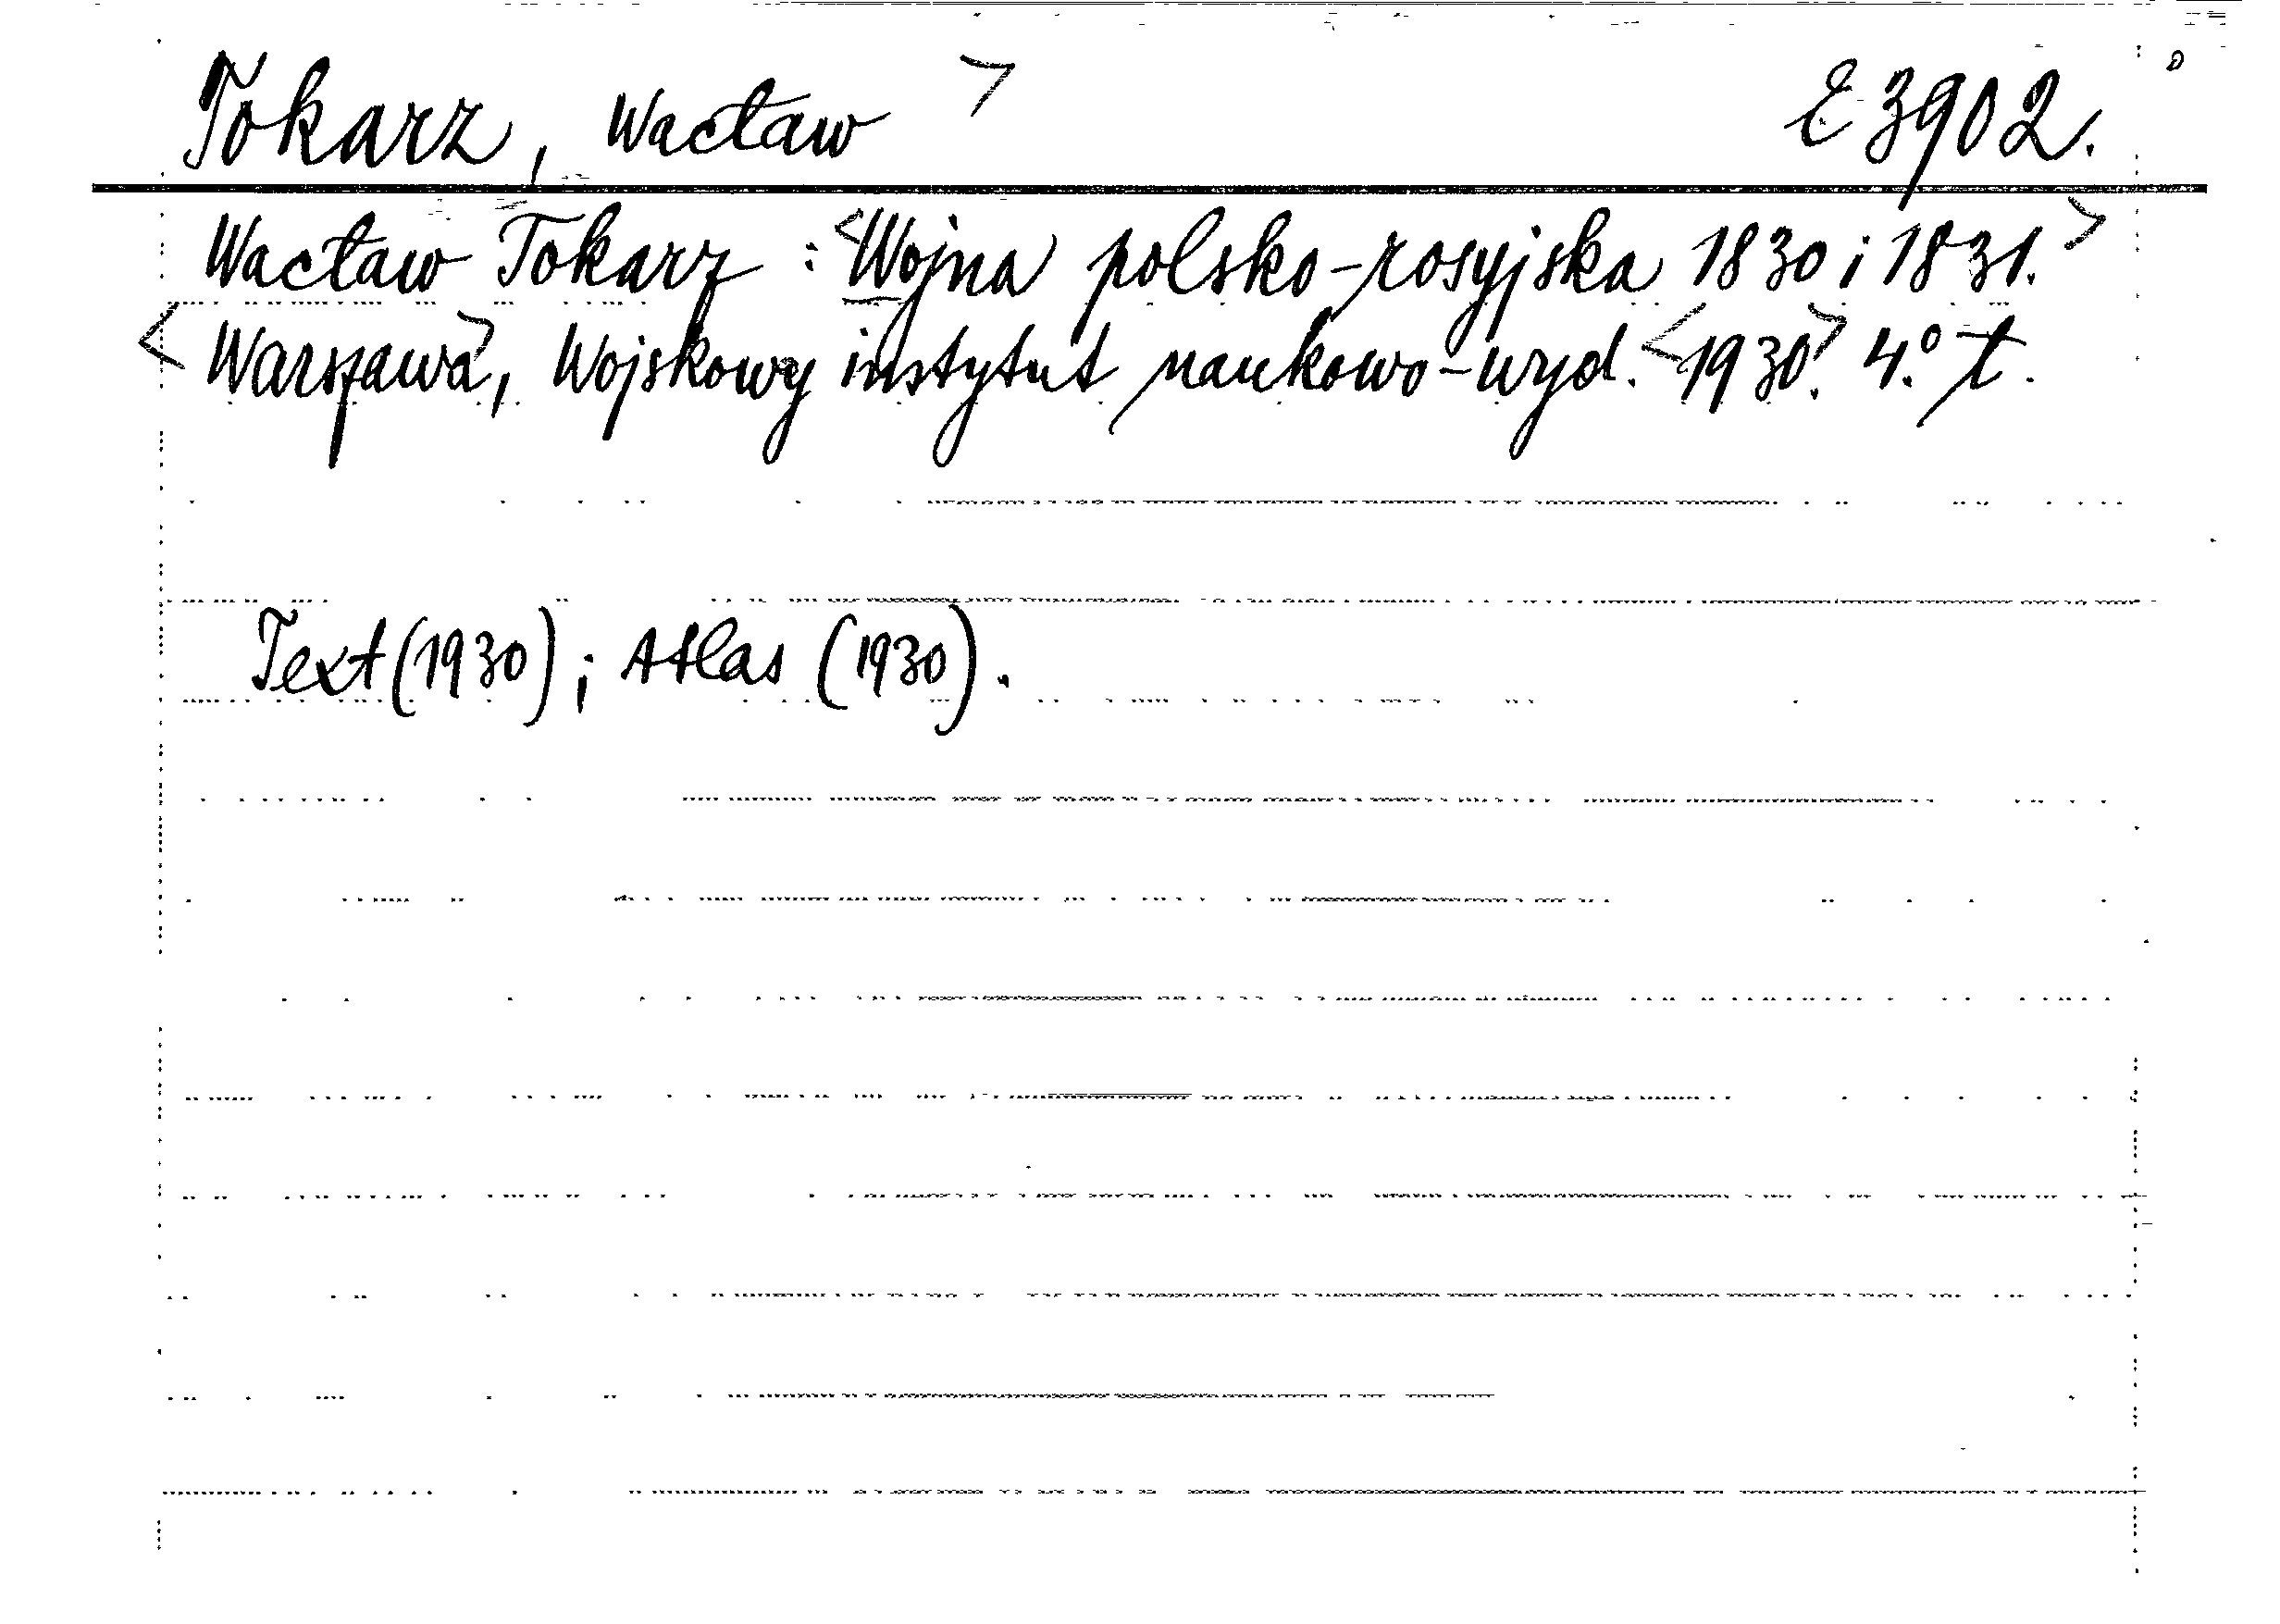 Tokarz, Wacław > E 3902.
Wacław Tokarz : <Wojna polsko-rosyjska 1830 i 1831.>
<Warszawa>, Wojskowy instytut naukowo-wyd. <1930>. 4.° T.
Text (1930) ; Atlas (1930).